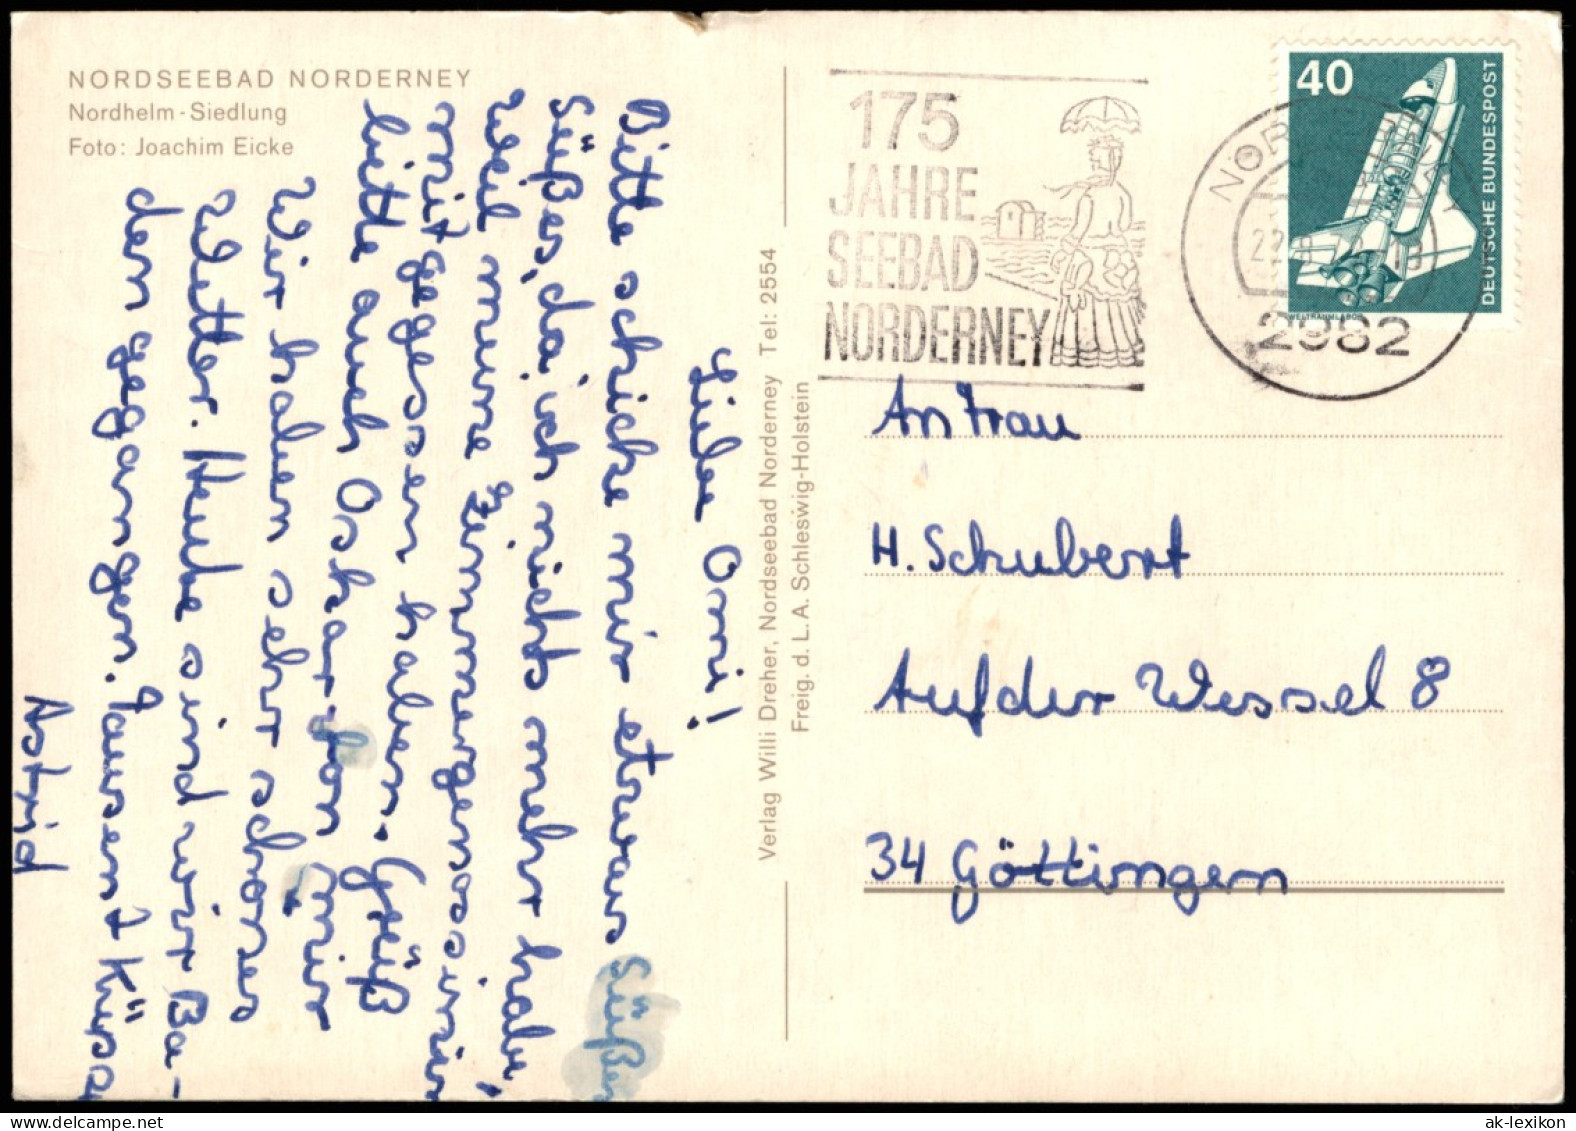 NORDSEEBAD NORDERNEY
Nordhelm - Siedlung
Foto: Joachim Eicke
Liebe Omi!
Bitte schicke mir etwas Süßes
Süßes, da ich nichts mehr habe,
weil meine Zimmergenossin
mitgegessen haben. Grüß
bitte auch Oskar von mir
Wir haben sehr schönes
Wetter. Heute sind wir Ba-
den gegangen. Tausend Küsse
Astrid
Verlag Willi Dreher, Nordseebad Norderney Tel: 2554
Freig. d. L.A. Schleswig-Holstein
175
JAHRE
SEEBAD
NORDERNEY
2982
40
DEUTSCHE BUNDESPOST
WELTRAUMLABOR
An Frau
H. Schubert
Auf der Wessel 8
34 Göttingen
ak-lexikon.com